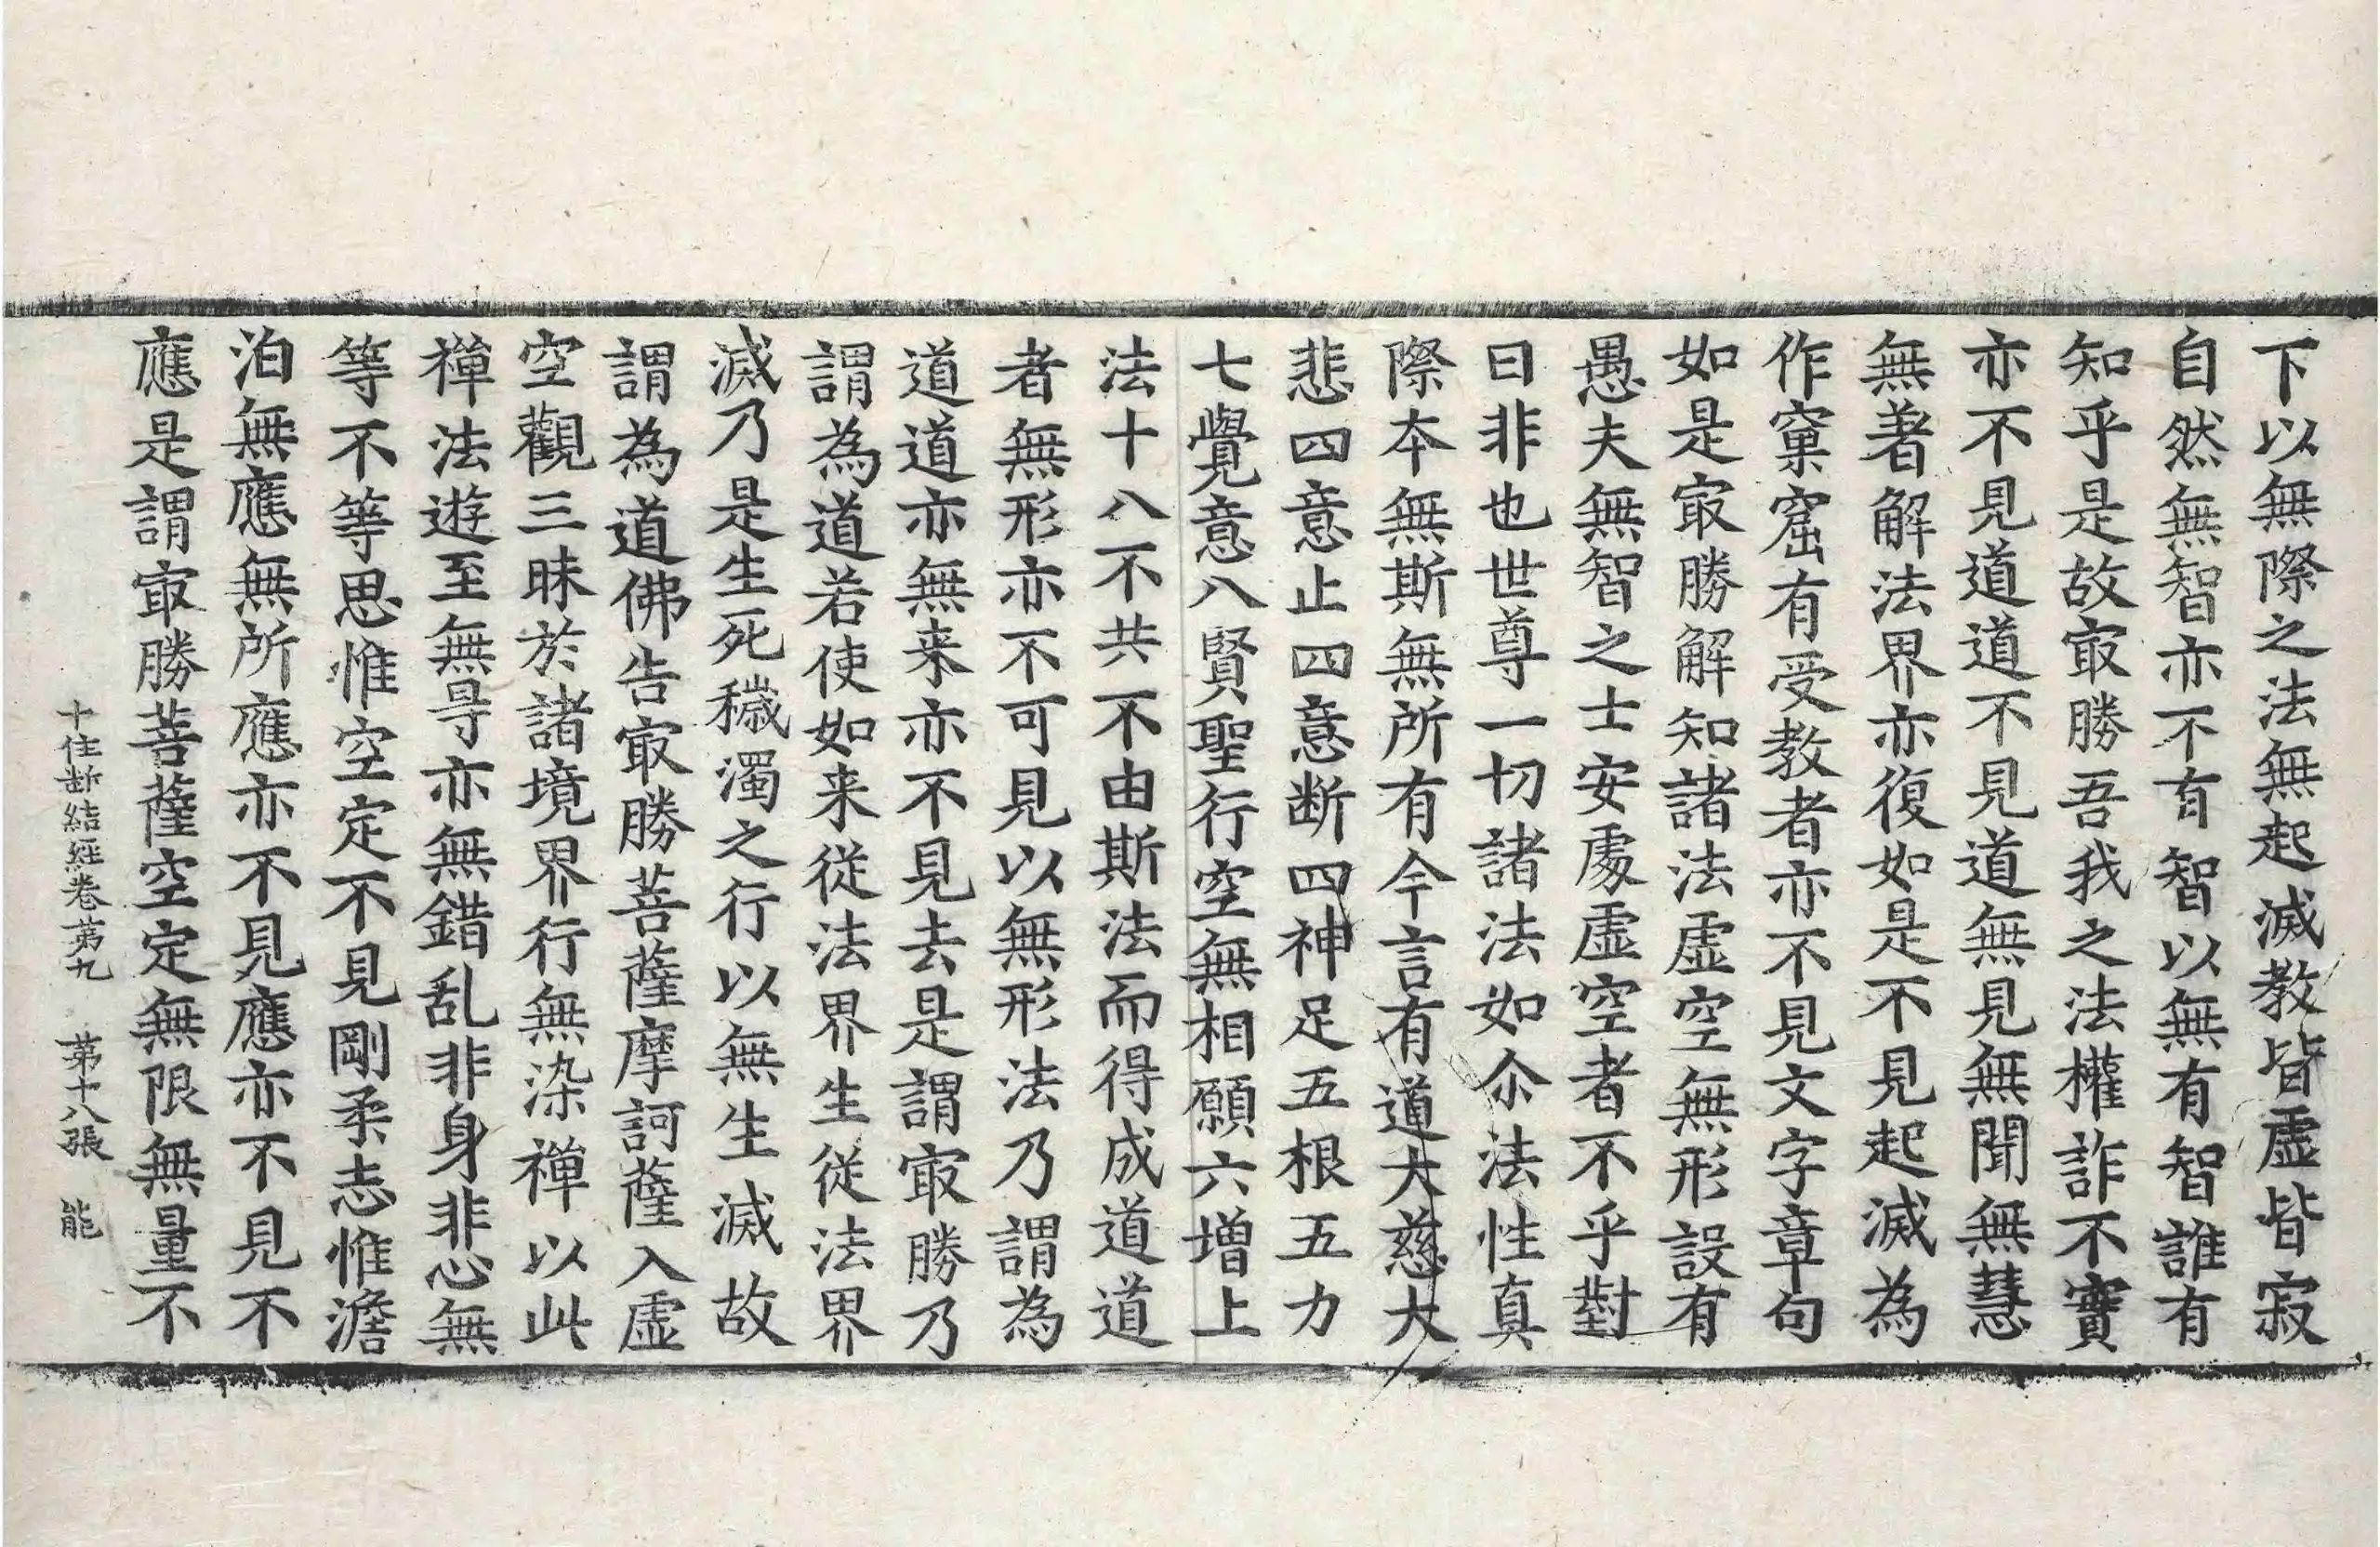 下以無際之法無起滅教皆虛皆寂
自然無智亦不有智以無有智誰有
知乎是故㝡勝吾我之法權詐不實
亦不見道道不見道無見無聞無慧
無著解法界亦復如是不見起滅為
作窠窟有受教者亦不見文字章句
如是㝡勝解知諸法虛空無形設有
愚夫無智之士安處虛空者不乎對
曰非也世尊一切諸法如尒法性真
際本無斯無所有今言有道大慈大
悲四意止四意断四神足五根五力
七覺意八賢聖行空無相願六增上
法十八不共不由斯法而得成道道
者無形亦不可見以無形法乃謂為
道道亦無来亦不見去是謂㝡勝乃
謂為道若使如来從法界生從法界
滅乃是生死穢濁之行以無生滅故
謂為道佛告㝡勝菩薩摩訶薩入虛
空觀三昧於諸境界行無染禪以此
禪法遊至無㝵亦無錯乱非身非心無
等不等思惟空定不見剛柔志惟澹
泊無應無所應亦不見應亦不見不
應是謂㝡勝菩薩空定無限無量不
十住断結經卷苐九 苐十八張 能